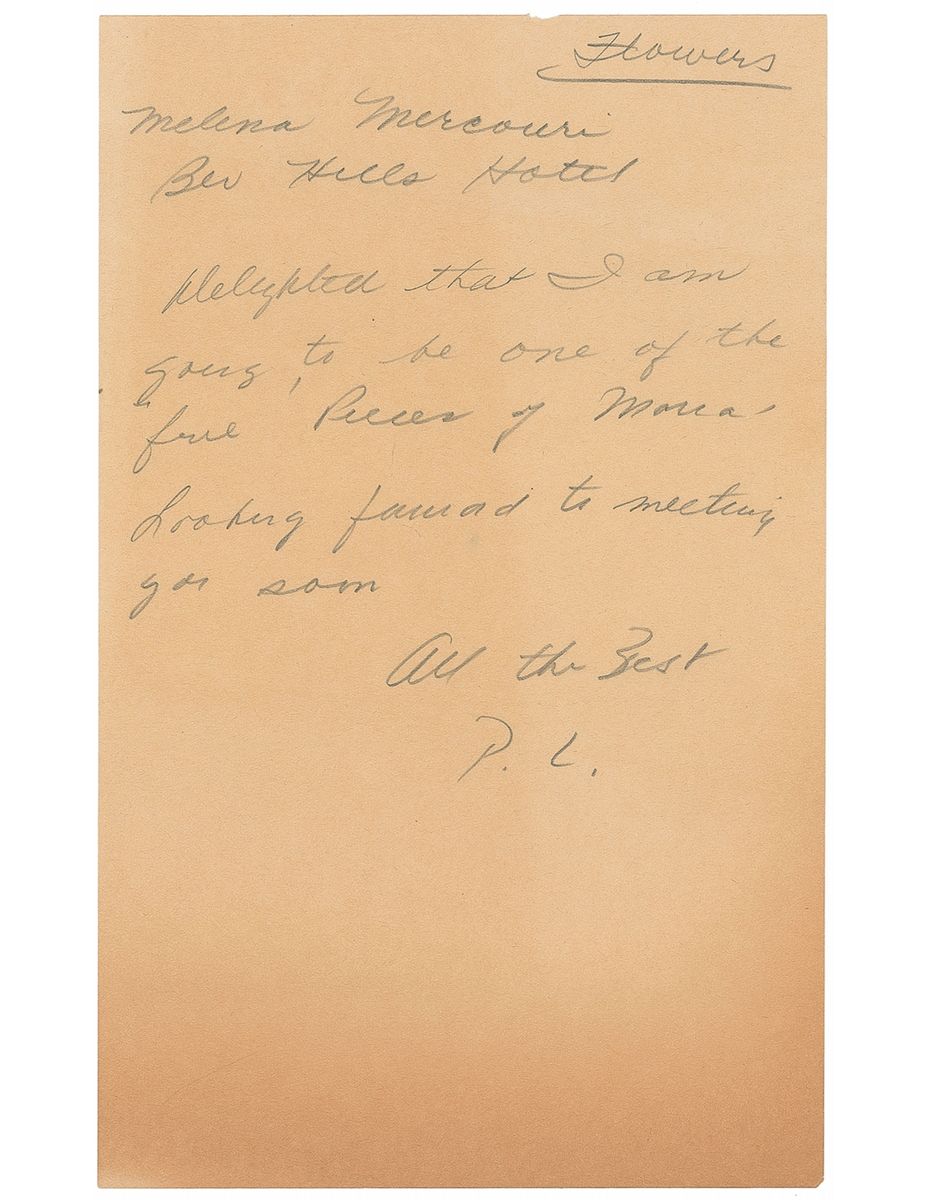 Flowers
Melena Mercouri
Bev Hills Hotel
Delighted that I am
going to be one of the
"five Pieces of Maria"
Looking forward to meeting
you soon
All the Best
P. L.